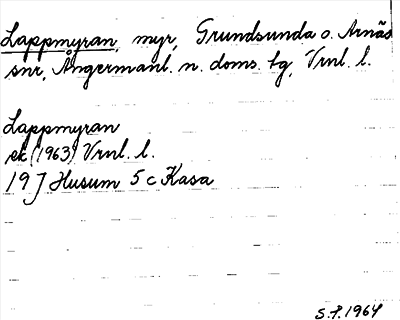 Lappmyran, myr, Grundsunda o. Arnäs
snr, Ångermanl. n. doms. tg, Vrnl. l.
Lappmyran
ek (1963) Vrnl. l.
19 J Husum 5 c Kasa
S.P. 1964